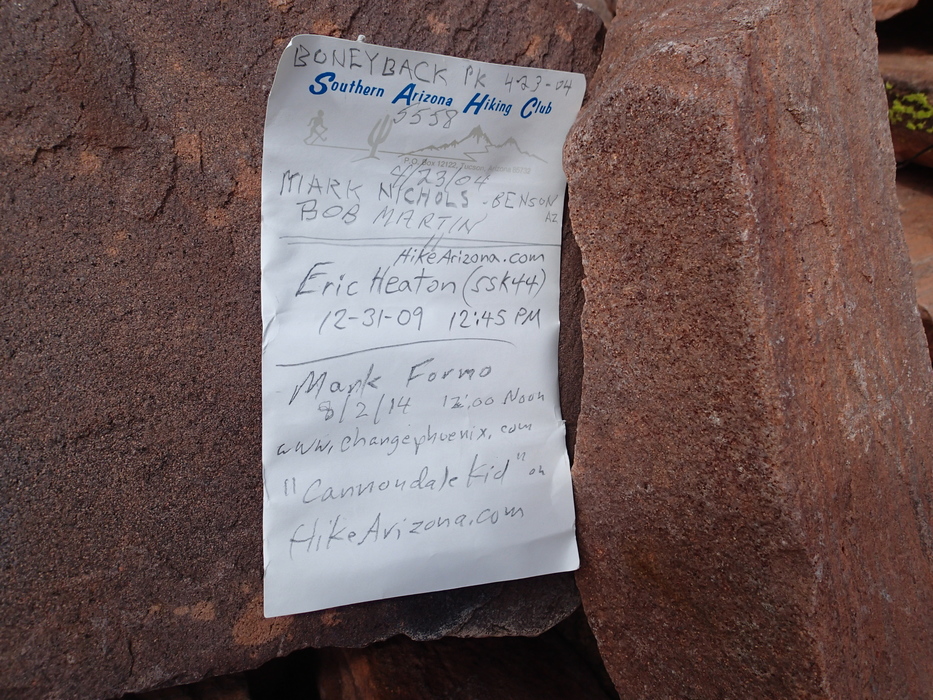 BONEYBACK PK 4-23-04
Southern Arizona Hiking Club
5558
P.O. Box 12122, Tucson, Arizona 85732
4/23/04
MARK NICHOLS - BENSON
AZ
BOB MARTIN "
HikeArizona.com
Eric Heaton (ssk44)
12-31-09 12:45 PM
Mark Formo
8/2/14 12:00 Noon
www.changephoenix.com
"Cannondale Kid" on
HikeArizona.com